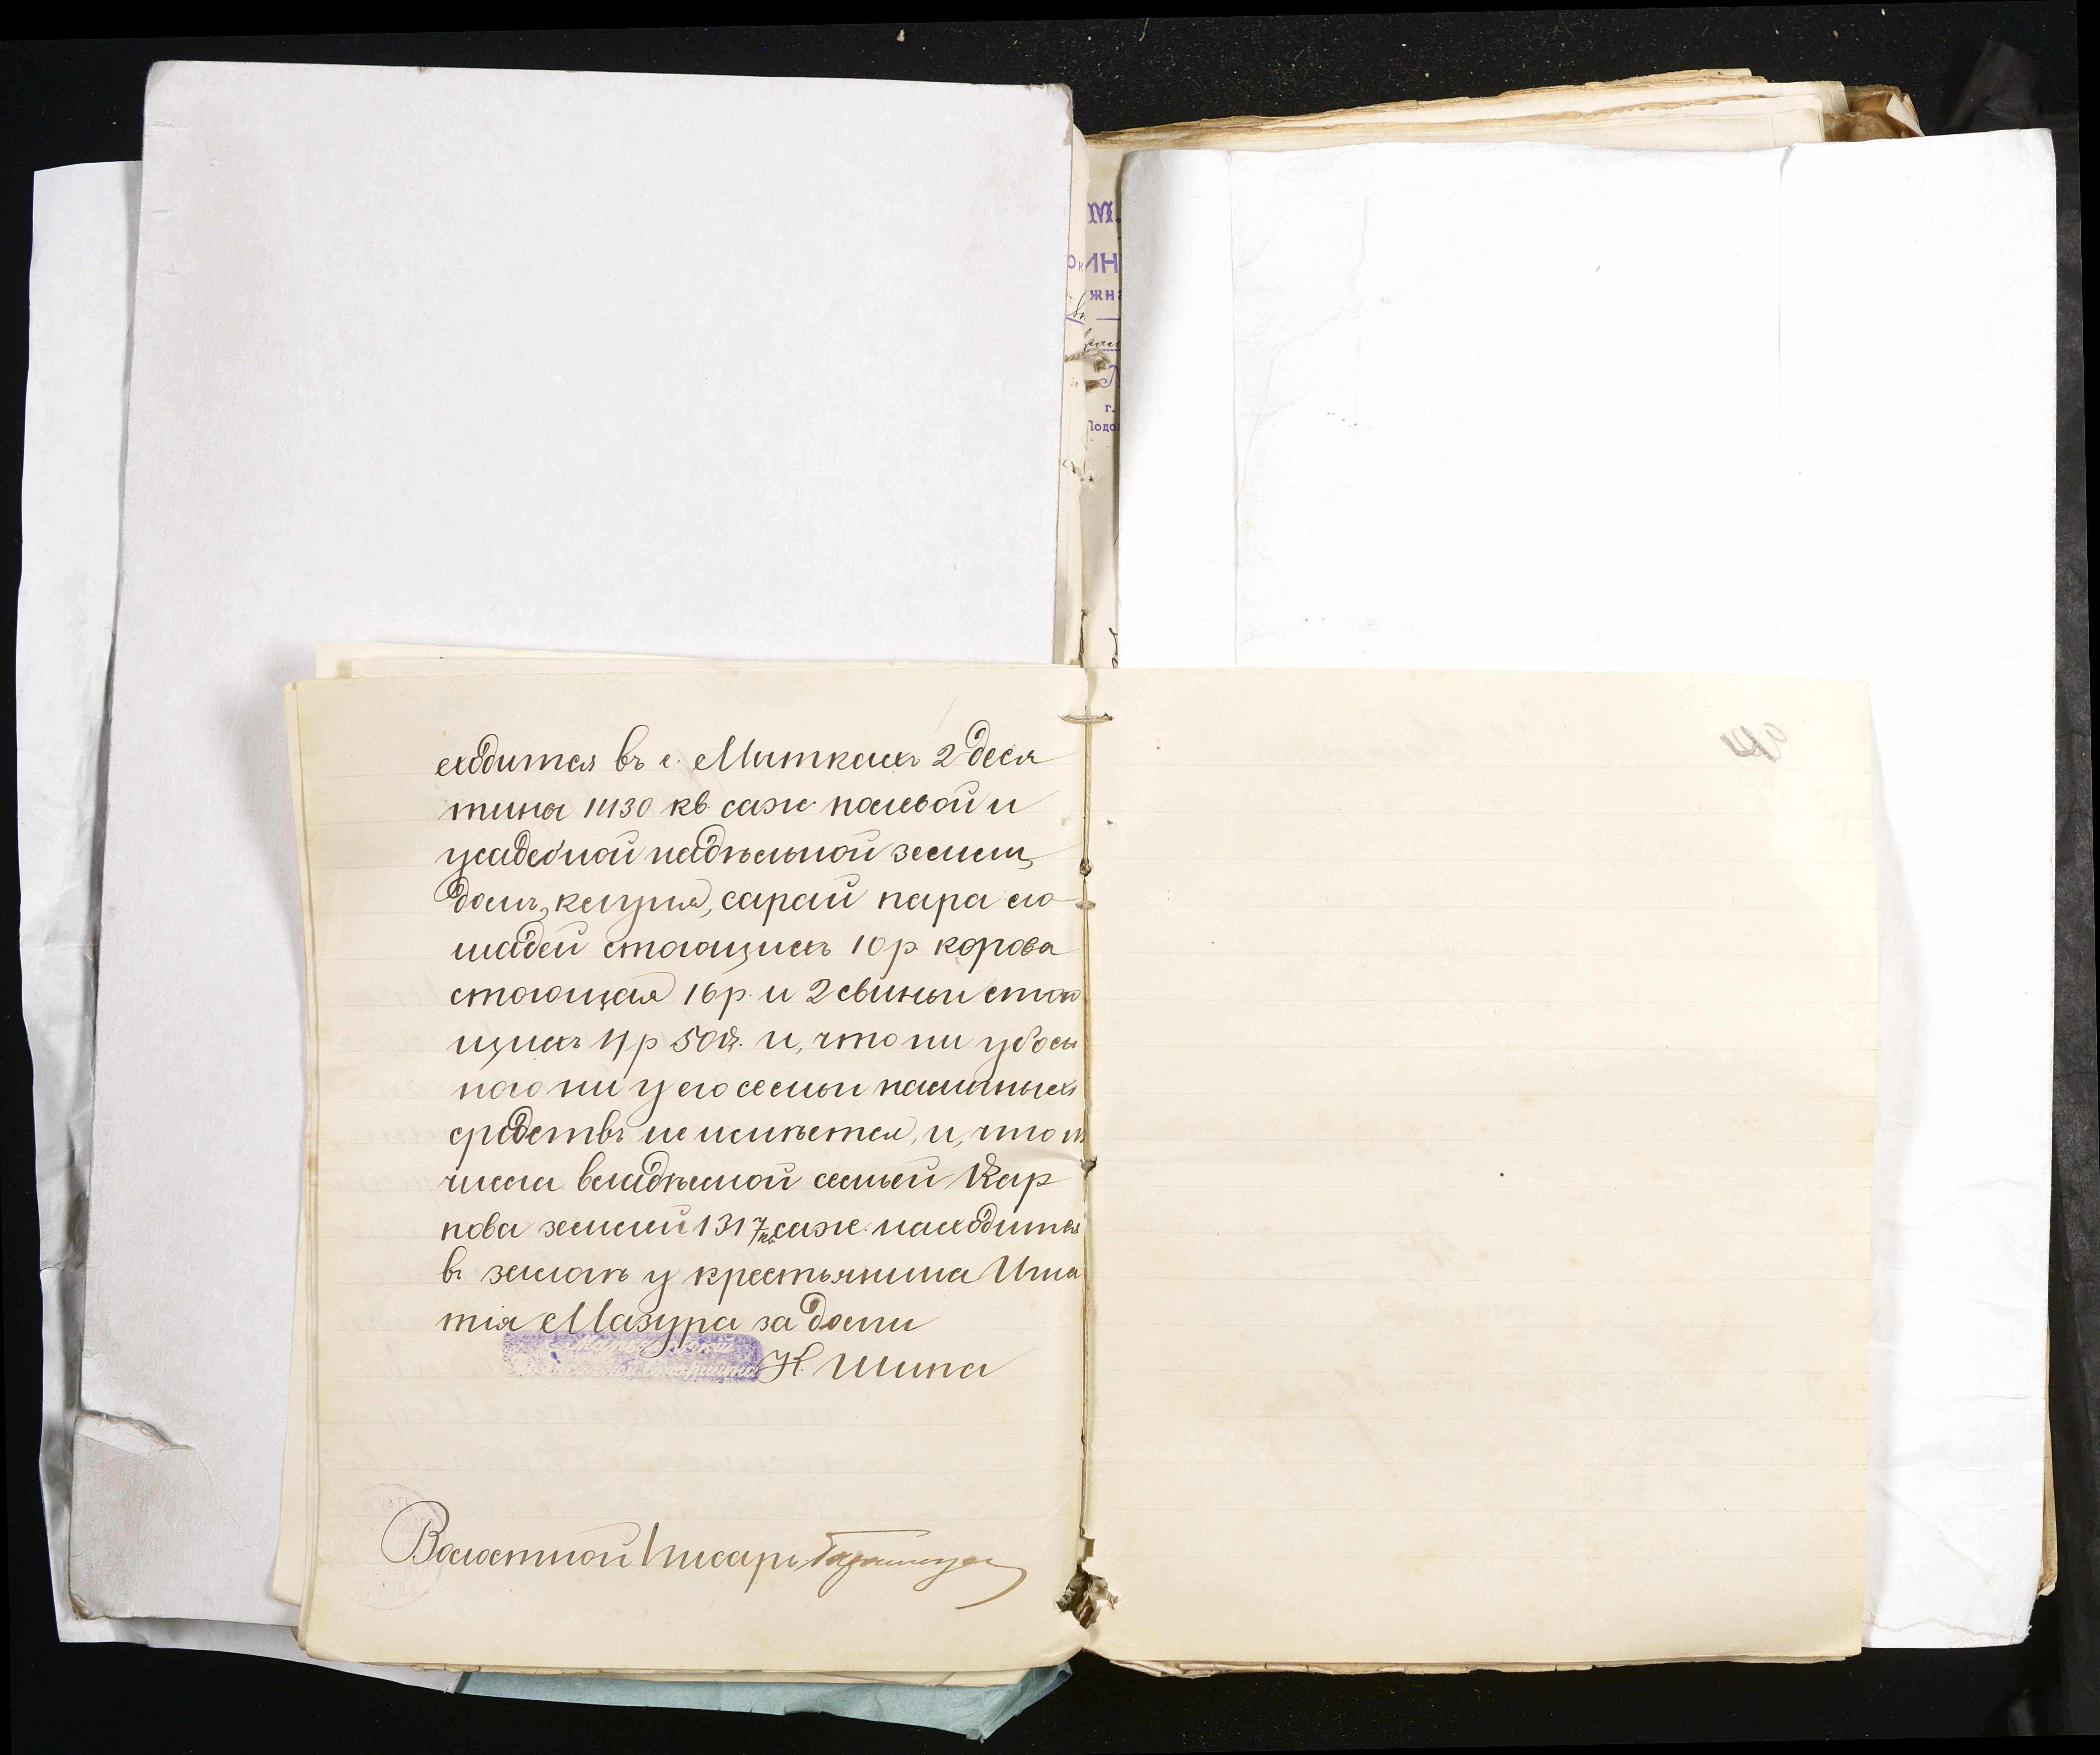 ходится въ с. Миткахъ 2 деся
тины 1430 кв. саж. полевой и
усадебной надѣльной земли,
домъ, клуня, сарай пара ло-
шадей стоющихъ 10 р. корова
стоющая 16 р. и 2 свиньи стою
щихъ 4 р 50 к. и, что ни у
него ни у его семьи наличныхъ
средствъ не имѣется, и, что
числа владѣемой семьей Кар
пова землей 1317 кв саж. находится
въ у крестьянина Игна
тія Мазура за долги
Н. Шипа
Волостной Писарь